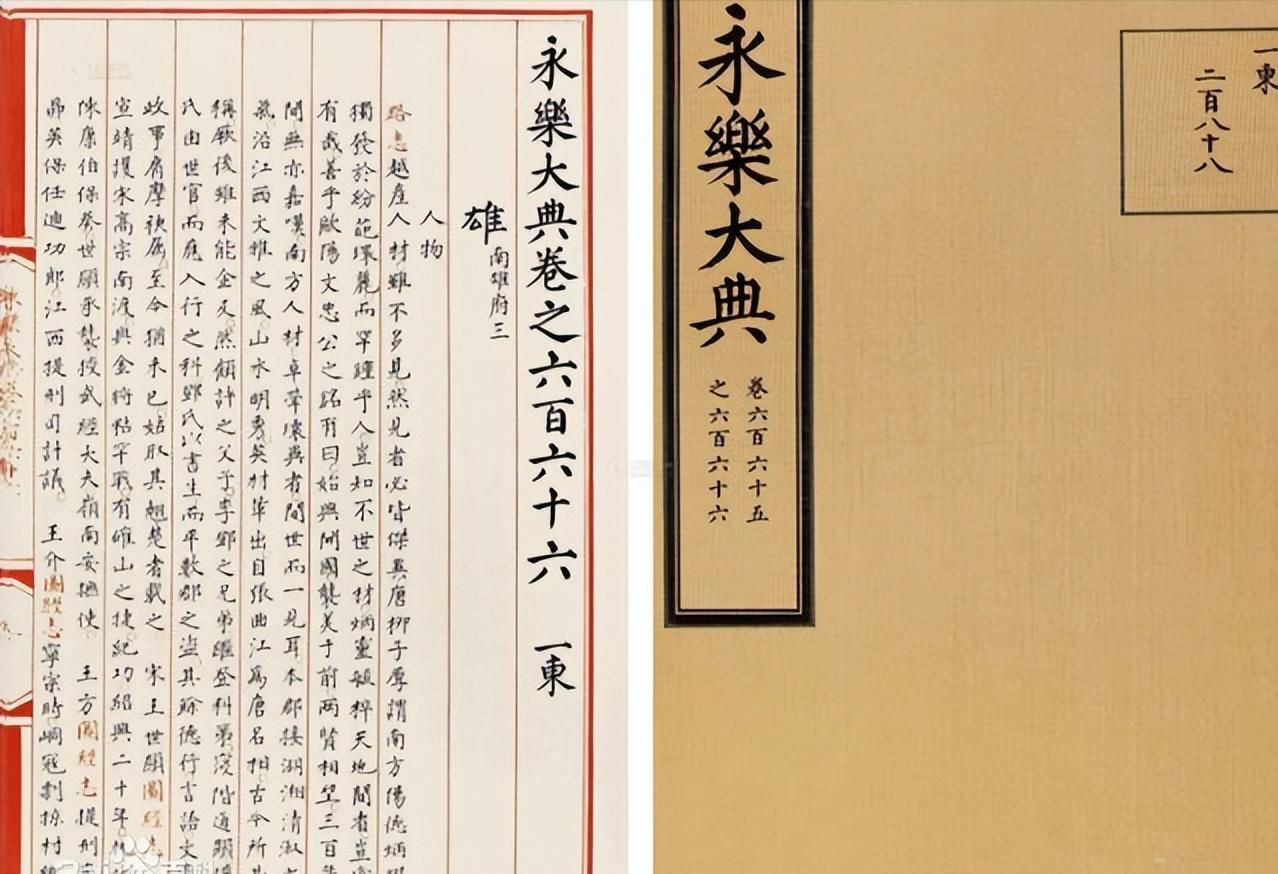 永樂大典卷之六百六十六 一東
雄 南雄府三
人物
路志越産人材雖不多見然見者必皆傑異唐柳子厚謂南方陽德炳
獨發於紛葩瓌麗而罕鍾乎人豈知不世之材炳靈毓粹天地間者豈
有哉善乎歐陽文忠公之銘有曰始興開國襲美于前兩賢相望三百
間無亦嘉嘆南方人材卓犖瓌異者間世而一見耳本郡接湖湘清淑
氣沿江西文雅之風山水明秀英材輩出自張曲江為唐名相古今所
稱厥後雖未能企及然頗評之父子李鄧之兄弟繼登科第浸階通顯
氏由世官而應入行之科鄧氏以書生而平數郡之盜其餘德行言語文
政事肩摩袂屬至今猶未已姑取其翹楚者載之 宋王世頤圖經志
宣靖擾宋高宗南渡與金將粘罕戰有確山之捷紀功紹興二十年
陳康伯保奏世頤承襲授武經大夫嶺南安撫使 王方圖經志提刑
昴英保任迪功郎江西提刑司計議 王介圖經志寧宗時峒寇剽掠村
永樂大典
卷六百六十五
之六百六十六
一東
二百八十八